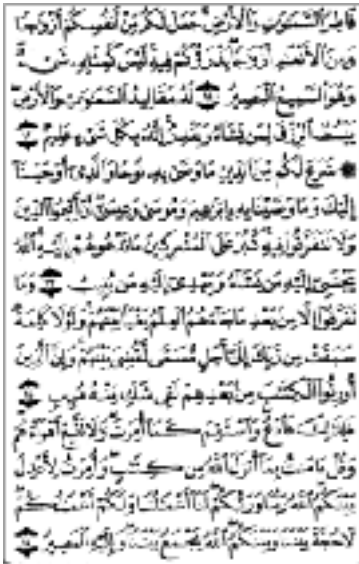 فَاطِرُ السَّمَوَتِ وَالْأَرْضِ جَعَلَ لَكُم مِّنْ أَنفُسِكُمْ أَزْوَجًا
وَمِنَ الْأَنْعَمِ أَزْوَجًا يَذْرَؤُكُمْ فِيهِ لَيْسَ كَمِثْلِهِ شَىْءٌ
وَهُوَ السَّمِيعُ الْبَصِيرُ ١١ لَهُ مَقَالِيدُ السَّمَوَتِ وَالْأَرْضِ
يَبْسُطُ الرِّزْقَ لِمَن يَشَاءُ وَيَقْدِرُ إِنَّهُ بِكُلِّ شَىْءٍ عَلِيمٌ ١٢
۞ شَرَعَ لَكُم مِّنَ الدِّينِ مَا وَصَّى بِهِ نُوحًا وَالَّذِى أَوْحَيْنَا
إِلَيْكَ وَمَا وَصَّيْنَا بِهِ إِبْرَهِيمَ وَمُوسَى وَعِيسَى أَنْ أَقِيمُوا الدِّينَ
وَلَا تَتَفَرَّقُوا فِيهِ كَبُرَ عَلَى الْمُشْرِكِينَ مَا تَدْعُوهُمْ إِلَيْهِ اللَّهُ
يَجْتَبِى إِلَيْهِ مَن يَشَاءُ وَيَهْدِى إِلَيْهِ مَن يُنِيبُ ١٣ وَمَا
تَفَرَّقُوا إِلَّا مِن بَعْدِ مَا جَاءَهُمُ الْعِلْمُ بَغْيًا بَيْنَهُمْ وَلَوْلَا كَلِمَةٌ
سَبَقَتْ مِن رَّبِّكَ إِلَى أَجَلٍ مُّسَمًّى لَّقُضِىَ بَيْنَهُمْ وَإِنَّ الَّذِينَ
أُورِثُوا الْكِتَبَ مِن بَعْدِهِمْ لَفِى شَكٍّ مِّنْهُ مُرِيبٍ ١٤
فَلِذَلِكَ فَادْعُ وَاسْتَقِمْ كَمَا أُمِرْتَ وَلَا تَتَّبِعْ أَهْوَاءَهُمْ
وَقُلْ ءَامَنتُ بِمَا أَنزَلَ اللَّهُ مِن كِتَبٍ وَأُمِرْتُ لِأَعْدِلَ
بَيْنَكُمُ اللَّهُ رَبُّنَا وَرَبُّكُمْ لَنَا أَعْمَلُنَا وَلَكُمْ أَعْمَلُكُمْ
لَا حُجَّةَ بَيْنَنَا وَبَيْنَكُمُ اللَّهُ يَجْمَعُ بَيْنَنَا وَإِلَيْهِ الْمَصِيرُ ١٥